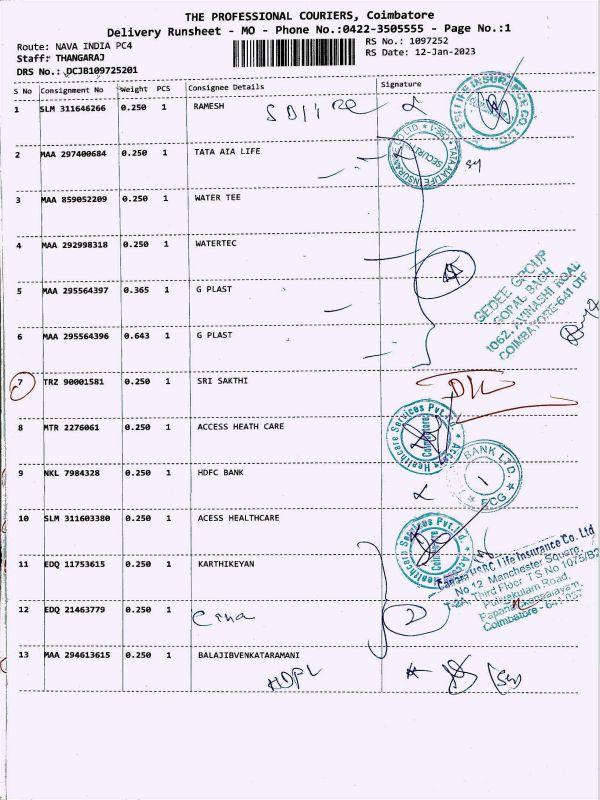 THE PROFESSIONAL COURIERS, Coimbatore
Delivery Runsheet - MO - Phone No.:0422-3505555 - Page No.:1
Route: NAVA INDIA PC4
RS No.: 1097252
Staff: THANGARAJ
RS Date: 12-Jan-2023
DRS No.: DCJB109725201
S No Consignment No Weight PCS Consignee Details Signature
1 SLM 311646266 0.250 1 RAMESH
2 MAA 297400684 0.250 1 TATA AIA LIFE
3 MAA 859052209 0.250 1 WATER TEE
4 MAA 292998318 0.250 1 WATERTEC
5 MAA 295564397 0.365 1 G PLAST
GEDEE GROUP
GOPAL BAGH
1062, AVINASHI ROAD
COIMBATORE-641 018
6 MAA 295564396 0.643 1 G PLAST
7 TRZ 90001581 0.250 1 SRI SAKTHI
8 MTR 2276061 0.250 1 ACCESS HEATH CARE
Access Healthcare Services Pvt. Ltd.
Coimbatore
9 NKL 7984328 0.250 1 HDFC BANK
BANK LTD
10 SLM 311603380 0.250 1 ACESS HEALTHCARE
Access Healthcare Services Pvt. Ltd.
Coimbatore
11 EDQ 11753615 0.250 1 KARTHIKEYAN
Canara HSBC Life Insurance Co. Ltd
No 12, Manchester Square,
Third Floor T S No 1075/B2
Puliyakulam Road,
Coimbatore - 641
12 EDQ 21463779 0.250 1
2
13 MAA 294613615 0.250 1 BALAJIBVENKATARAMANI
HDPL